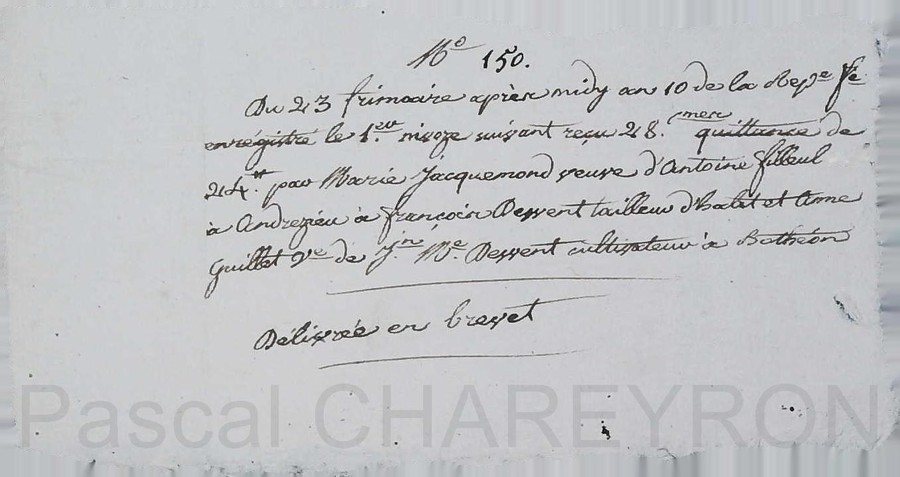 N.º 150.
Du 23 frimaire après midy an 10 de la Rep.e fse
enrégistré le 1.er nivoze suivant reçu 28. mes quittance de
24.tt par Marie Jacquemond veuve d'Antoine filleul
à Andrezieu à françois Dessent tailleur d'habit et Anne
Guillet V.e de J.n M.e Dessent cultivateur à Bothéon
Délivrée en brevet
Pascal CHAREYRON